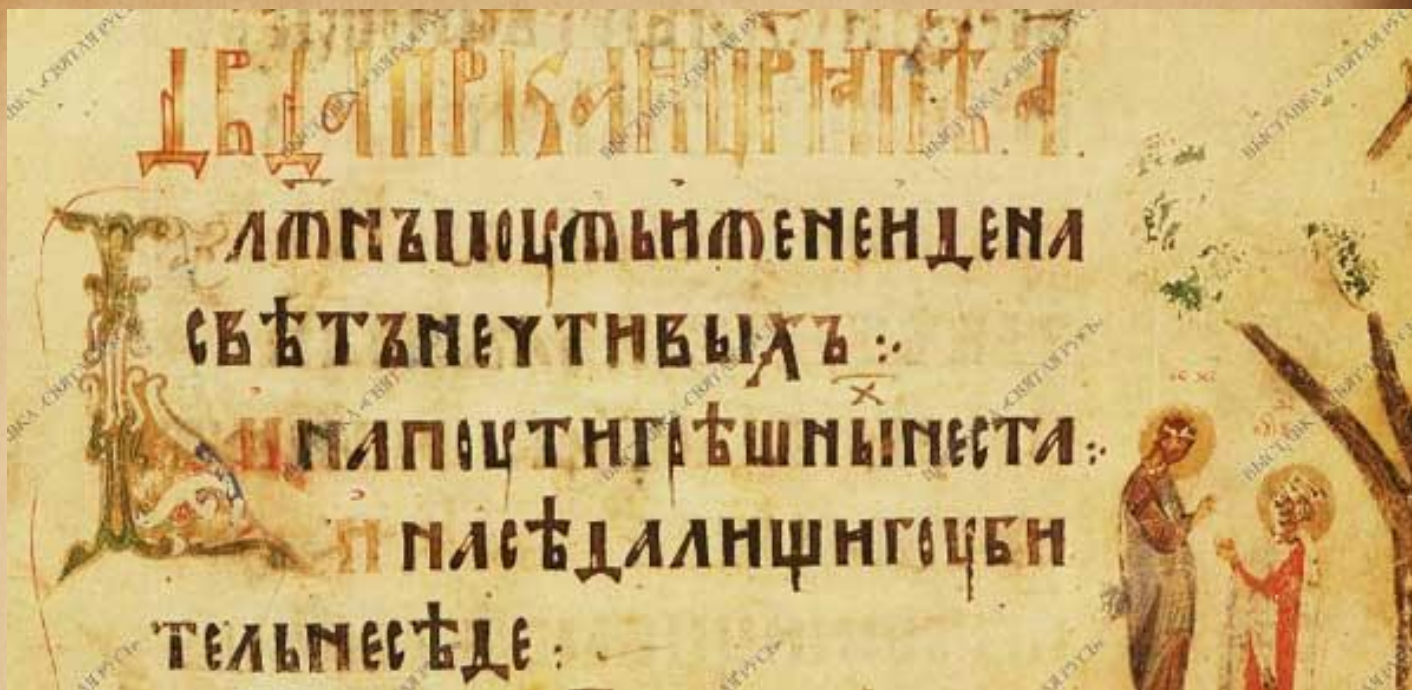 ДВДАПРКАИЦРѦПѢ.А.
БЛЖНЪМОУЖЬИЖЕНЕИДЕНА
СВѢТЪНЕЧТИВЫХЪ :·
ИНАПОУТИГРѢШНЫⷯНЕСТА :·
ИНАСѢДАЛИЩИГОУБИ
ТЕЛЬНЕСѢДЕ :
IC XC
ВЫСТАВКА «СВЯТАЯ РУСЬ»